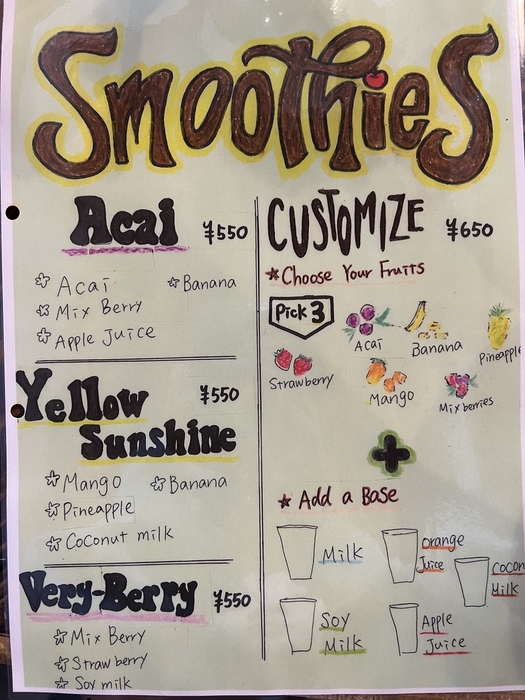 Smoothies
Acai ¥550
Acaí Banana
Mix Berry
Apple Juice
Yellow ¥550
Sunshine
Mango Banana
Pineapple
Coconut milk
Very-Berry ¥550
Mix Berry
Strawberry
Soy milk
CUSTOMIZE ¥650
Choose Your Fruits
Pick 3
Acaí Banana Pineapple
Strawberry Mango Mixberries
+
Add a Base
Milk
Orange
Juice
Milk
Soy
Milk
Apple
Juice